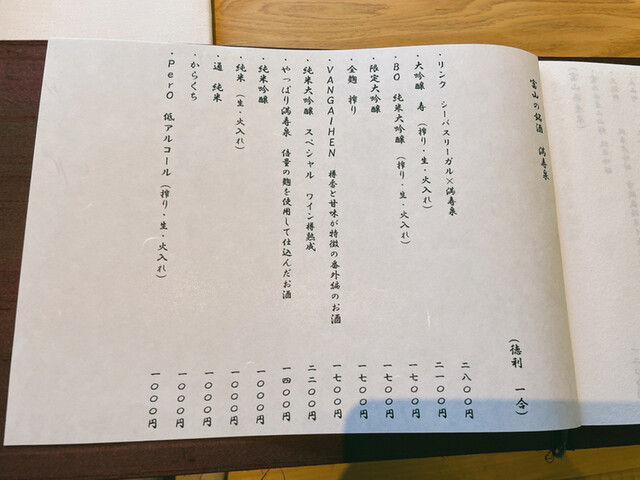 富山の銘酒 満寿泉
(徳利 一合)
・リンク シーバスリーガル×満寿泉 二八〇〇円
・大吟醸 寿 (搾り・生・火入れ) 二一〇〇円
・BO 純米大吟醸 (搾り・生・火入れ) 一七〇〇円
・限定大吟醸 一七〇〇円
・全麹 搾り 一七〇〇円
・VANGAIHEN 樽香と甘味が特徴の番外編のお酒 一七〇〇円
・純米大吟醸 スペシャル ワイン樽熟成 二二〇〇円
・やっぱり満寿泉 倍量の麹を使用して仕込んだお酒 一四〇〇円
・純米吟醸 一〇〇〇円
・純米 (生・火入れ) 一〇〇〇円
・通 純米 一〇〇〇円
・からくち 一〇〇〇円
・PerO 低アルコール (搾り・生・火入れ) 一〇〇〇円